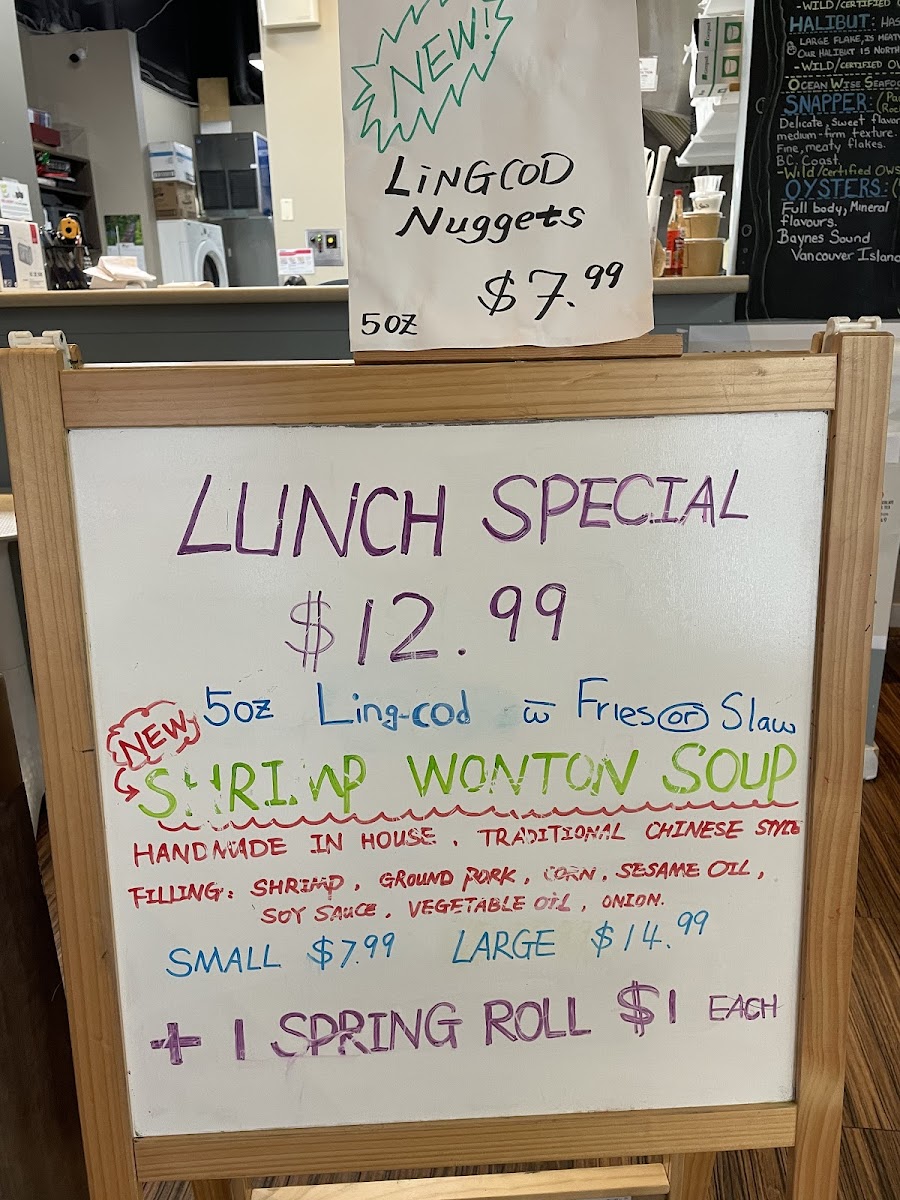 NEW!
LINGCOD
Nuggets
$7.99
5OZ
LUNCH SPECIAL
$12.99
5oz Ling-cod w̄ Fries or Slaw
NEW
SHRIMP WONTON SOUP
HANDMADE IN HOUSE, TRADITIONAL CHINESE STYLE
FILLING: SHRIMP, GROUND PORK, CORN, SESAME OIL,
SOY SAUCE, VEGETABLE OIL, ONION.
SMALL $7.99 LARGE $14.99
+ 1 SPRING ROLL $1 EACH
-WILD/CERTIFIED
HALIBUT:
LARGE FLAKE, IS
OUR HALIBUT IS NORTH
-WILD/CERTIFIED
OCEAN WISE
SNAPPER:
Delicate, sweet
medium-firm texture.
Fine, meaty flakes.
B.C. Coast.
-Wild/Certified OWS
OYSTERS:
Full body, Mineral
flavours.
Baynes Sound
Vancouver Island